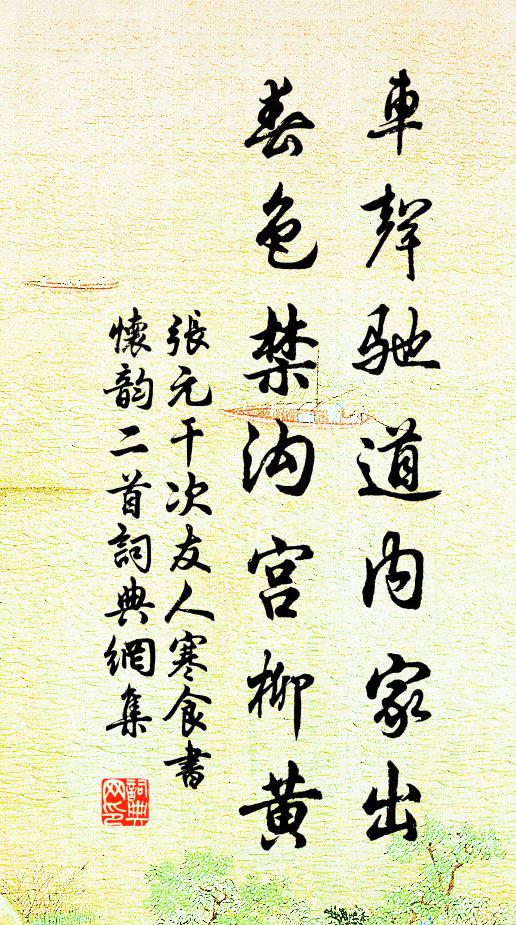 車聲馳道內家出
春色禁沟宫柳黄
張元干次友人寒食書
懷韵二首詞典網集
詞典网印